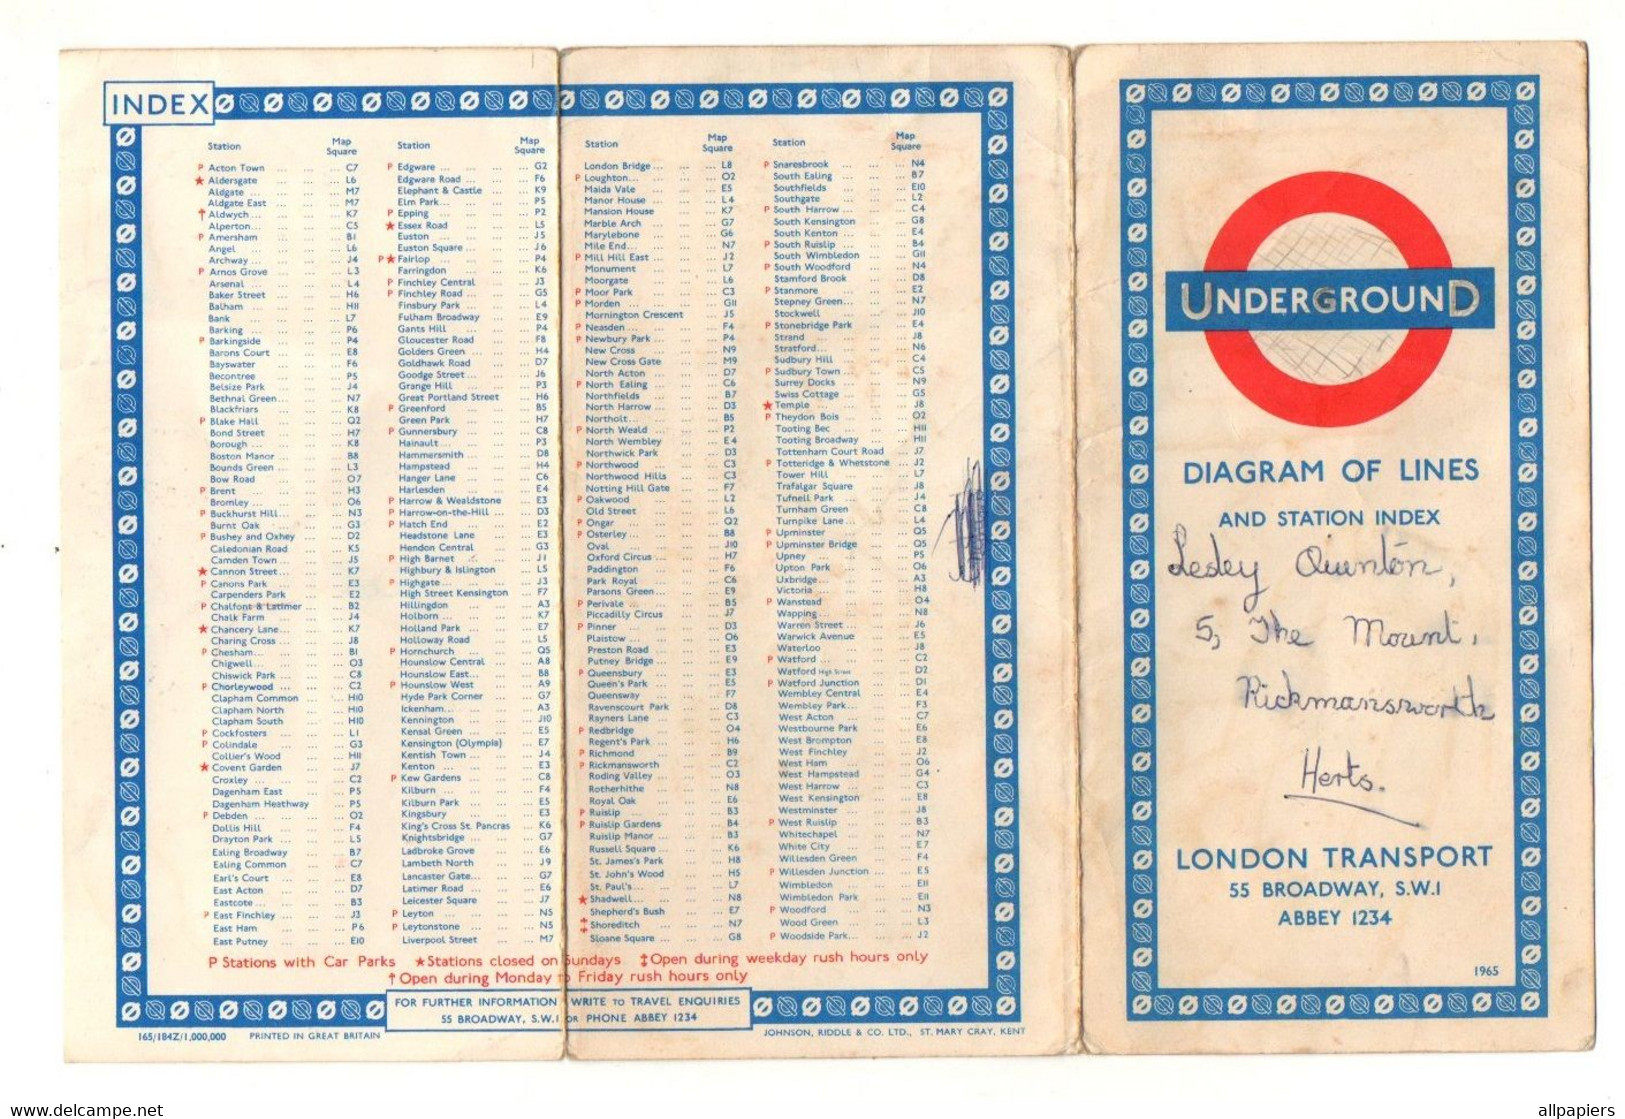 INDEX
Station Map Square
P Acton Town ... ... ... C7
★ Aldersgate ... ... ... L6
Aldgate ... ... ... M7
Aldgate East ... ... ... M7
† Aldwych ... ... ... K7
Alperton ... ... ... C5
P Amersham ... ... ... B1
Angel ... ... ... L6
Archway ... ... ... J4
P Arnos Grove ... ... ... L3
Arsenal ... ... ... L4
Baker Street ... ... ... H6
Balham ... ... ... H11
Bank ... ... ... L7
Barking ... ... ... P6
P Barkingside ... ... P4
Barons Court ... ... ... E8
Bayswater ... ... ... F6
Becontree ... ... ... P5
Belsize Park ... ... ... J4
Bethnal Green ... ... ... N7
Blackfriars ... ... ... K8
P Blake Hall ... ... ... Q2
Bond Street ... ... ... H7
Borough ... ... ... K8
Boston Manor ... ... ... B8
Bounds Green ... ... ... L3
Bow Road ... ... ... O7
P Brent ... ... ... H3
Bromley ... ... ... O6
P Buckhurst Hill ... ... ... N3
Burnt Oak ... ... ... G3
P Bushey and Oxhey ... ... D2
Caledonian Road ... ... K5
Camden Town ... ... ... J5
★ Cannon Street ... ... ... K7
P Canons Park ... ... ... E3
Carpenders Park ... ... E2
P Chalfont & Latimer ... ... B2
Chalk Farm ... ... ... J4
★ Chancery Lane ... ... ... K7
Charing Cross ... ... ... J8
P Chesham ... ... ... B1
Chigwell ... ... ... O3
Chiswick Park ... ... ... C8
P Chorleywood ... ... ... C2
Clapham Common ... ... H10
Clapham North ... ... H10
Clapham South ... ... H10
P Cockfosters ... ... ... L1
P Colindale ... ... ... G3
Collier's Wood ... ... H11
★ Covent Garden ... ... J7
Croxley ... ... ... C2
Dagenham East ... ... P5
Dagenham Heathway ... P5
P Debden ... ... ... O2
Dollis Hill ... ... ... F4
Drayton Park ... ... ... L5
Ealing Broadway ... ... B7
Ealing Common ... ... C7
Earl's Court ... ... ... E8
East Acton ... ... ... D7
Eastcote ... ... ... B3
P East Finchley ... ... ... J3
East Ham ... ... ... P6
East Putney ... ... ... E10
Station Map Square
P Edgware ... ... ... ... G2
Edgware Road ... ... ... F6
Elephant & Castle ... ... K9
Elm Park ... ... ... ... P5
P Epping ... ... ... ... P2
★ Essex Road ... ... ... L5
Euston ... ... ... ... J5
Euston Square ... ... ... J6
P★ Fairlop ... ... ... ... P4
Farringdon ... ... ... K6
P Finchley Central ... ... J3
P Finchley Road ... ... ... G5
Finsbury Park ... ... ... L4
Fulham Broadway ... ... E9
Gants Hill ... ... ... P4
Gloucester Road ... ... F8
Golders Green ... ... ... H4
Goldhawk Road ... ... D7
Goodge Street ... ... ... J6
Grange Hill ... ... ... P3
Great Portland Street ... H6
P Greenford ... ... ... B5
Green Park ... ... ... H7
P Gunnersbury ... ... ... C8
Hainault ... ... ... ... P3
Hammersmith ... ... ... D8
Hampstead ... ... ... H4
Hanger Lane ... ... ... C6
Harlesden ... ... ... E4
P Harrow & Wealdstone ... E3
P Harrow-on-the-Hill ... ... D3
P Hatch End ... ... ... E2
Headstone Lane ... ... E3
Hendon Central ... ... G3
P High Barnet ... ... ... J1
Highbury & Islington ... L5
P Highgate ... ... ... ... J3
High Street Kensington ... F7
Hillingdon ... ... ... A3
Holborn ... ... ... ... K7
Holland Park ... ... ... E7
Holloway Road ... ... L5
P Hornchurch ... ... ... Q5
Hounslow Central ... ... A8
Hounslow East ... ... ... B8
P Hounslow West ... ... A9
Hyde Park Corner ... ... G7
Ickenham ... ... ... ... A3
Kennington ... ... ... J10
Kensal Green ... ... ... E5
Kensington (Olympia) ... E7
Kentish Town ... ... ... J4
Kenton ... ... ... ... E3
P Kew Gardens ... ... ... C8
Kilburn ... ... ... ... F4
Kilburn Park ... ... ... E5
Kingsbury ... ... ... E3
King's Cross St. Pancras ... K6
Knightsbridge ... ... ... G7
Ladbroke Grove ... ... E6
Lambeth North ... ... J9
Lancaster Gate ... ... ... G7
Latimer Road ... ... ... E6
Leicester Square ... ... J7
P Leyton ... ... ... ... N5
P Leytonstone ... ... ... N5
Liverpool Street ... ... M7
Station Map Square
London Bridge ... ... ... L8
P Loughton ... ... ... O2
Maida Vale ... ... ... E5
Manor House ... ... ... L4
Mansion House ... ... K7
Marble Arch ... ... ... G7
Marylebone ... ... ... G6
Mile End ... ... ... N7
P Mill Hill East ... ... ... J2
Monument ... ... ... L7
Moorgate ... ... ... L6
P Moor Park ... ... ... C3
P Morden ... ... ... G11
Mornington Crescent ... J5
P Neasden ... ... ... F4
P Newbury Park ... ... ... P4
New Cross ... ... ... N9
New Cross Gate ... ... M9
North Acton ... ... ... D7
P North Ealing ... ... ... C6
Northfields ... ... ... B7
North Harrow ... ... ... D3
Northolt ... ... ... B5
P North Weald ... ... ... P2
North Wembley ... ... E4
Northwick Park ... ... D3
P Northwood ... ... ... C3
Northwood Hills ... ... C3
Notting Hill Gate ... ... F7
P Oakwood ... ... ... L2
Old Street ... ... ... L6
P Ongar ... ... ... Q2
P Osterley ... ... ... B8
Oval ... ... ... J10
Oxford Circus ... ... ... H7
Paddington ... ... ... F6
Park Royal ... ... ... C6
Parsons Green ... ... ... E9
P Perivale ... ... ... B5
Piccadilly Circus ... ... J7
P Pinner ... ... ... D3
Plaistow ... ... ... O6
Preston Road ... ... ... E3
Putney Bridge ... ... ... E9
P Queensbury ... ... ... E3
Queen's Park ... ... ... E5
Queensway ... ... ... F7
Ravenscourt Park ... ... D8
Rayners Lane ... ... ... C3
P Redbridge ... ... ... O4
Regent's Park ... ... ... H6
P Richmond ... ... ... B9
P Rickmansworth ... ... C2
Roding Valley ... ... ... O3
Rotherhithe ... ... ... N8
Royal Oak ... ... ... E6
P Ruislip ... ... ... B3
P Ruislip Gardens ... ... B4
Ruislip Manor ... ... ... B3
Russell Square ... ... ... K6
St. James's Park ... ... H8
St. John's Wood ... ... H5
St. Paul's ... ... ... L7
★ Shadwell ... ... ... N8
Shepherd's Bush ... ... E7
‡ Shoreditch ... ... ... N7
Sloane Square ... ... ... G8
Station Map Square
P Snaresbrook ... ... ... N4
South Ealing ... ... ... B7
Southfields ... ... ... E10
Southgate ... ... ... L2
P South Harrow ... ... ... C4
South Kensington ... ... G8
South Kenton ... ... ... E4
P South Ruislip ... ... ... B4
South Wimbledon ... ... G11
P South Woodford ... ... N4
Stamford Brook ... ... D8
P Stanmore ... ... ... E2
Stepney Green ... ... ... N7
Stockwell ... ... ... J10
P Stonebridge Park ... ... E4
Strand ... ... ... J8
Stratford ... ... ... N6
Sudbury Hill ... ... ... C4
P Sudbury Town ... ... ... C5
Surrey Docks ... ... ... N9
Swiss Cottage ... ... ... G5
★ Temple ... ... ... J8
P Theydon Bois ... ... ... O2
Tooting Bec ... ... ... H11
Tooting Broadway ... ... H11
Tottenham Court Road ... J7
P Totteridge & Whetstone ... J2
Tower Hill ... ... ... L7
Trafalgar Square ... ... J8
Tufnell Park ... ... ... J4
Turnham Green ... ... C8
Turnpike Lane ... ... ... L4
P Upminster ... ... ... Q5
P Upminster Bridge ... ... Q5
Upney ... ... ... P5
Upton Park ... ... ... O6
Uxbridge ... ... ... A3
Victoria ... ... ... H8
P Wanstead ... ... ... O4
Wapping ... ... ... N8
Warren Street ... ... ... J6
Warwick Avenue ... ... E5
Waterloo ... ... ... J8
P Watford ... ... ... C2
Watford High Street ... ... D2
P Watford Junction ... ... D1
Wembley Central ... ... E4
Wembley Park ... ... ... F3
West Acton ... ... ... C7
Westbourne Park ... ... E6
West Brompton ... ... E8
West Finchley ... ... ... J2
West Ham ... ... ... O6
West Hampstead ... ... G4
West Harrow ... ... ... C3
West Kensington ... ... E8
Westminster ... ... ... J8
P West Ruislip ... ... ... B3
Whitechapel ... ... ... N7
White City ... ... ... E7
Willesden Green ... ... F4
P Willesden Junction ... ... E5
Wimbledon ... ... ... E11
Wimbledon Park ... ... E11
P Woodford ... ... ... N3
Wood Green ... ... ... L3
P Woodside Park ... ... ... J2
P Stations with Car Parks ★Stations closed on Sundays ‡Open during weekday rush hours only
†Open during Monday to Friday rush hours only
FOR FURTHER INFORMATION WRITE TO TRAVEL ENQUIRIES
55 BROADWAY, S.W.1 OR PHONE ABBEY 1234
165/184Z/1,000,000 PRINTED IN GREAT BRITAIN JOHNSON, RIDDLE & CO. LTD., ST. MARY CRAY, KENT
UNDERGROUND
DIAGRAM OF LINES
AND STATION INDEX
Lesley Quinton,
5, The Mount,
Rickmansworth
Herts.
LONDON TRANSPORT
55 BROADWAY, S.W.1
ABBEY 1234
1965
www.delcampe.net
allpapiers